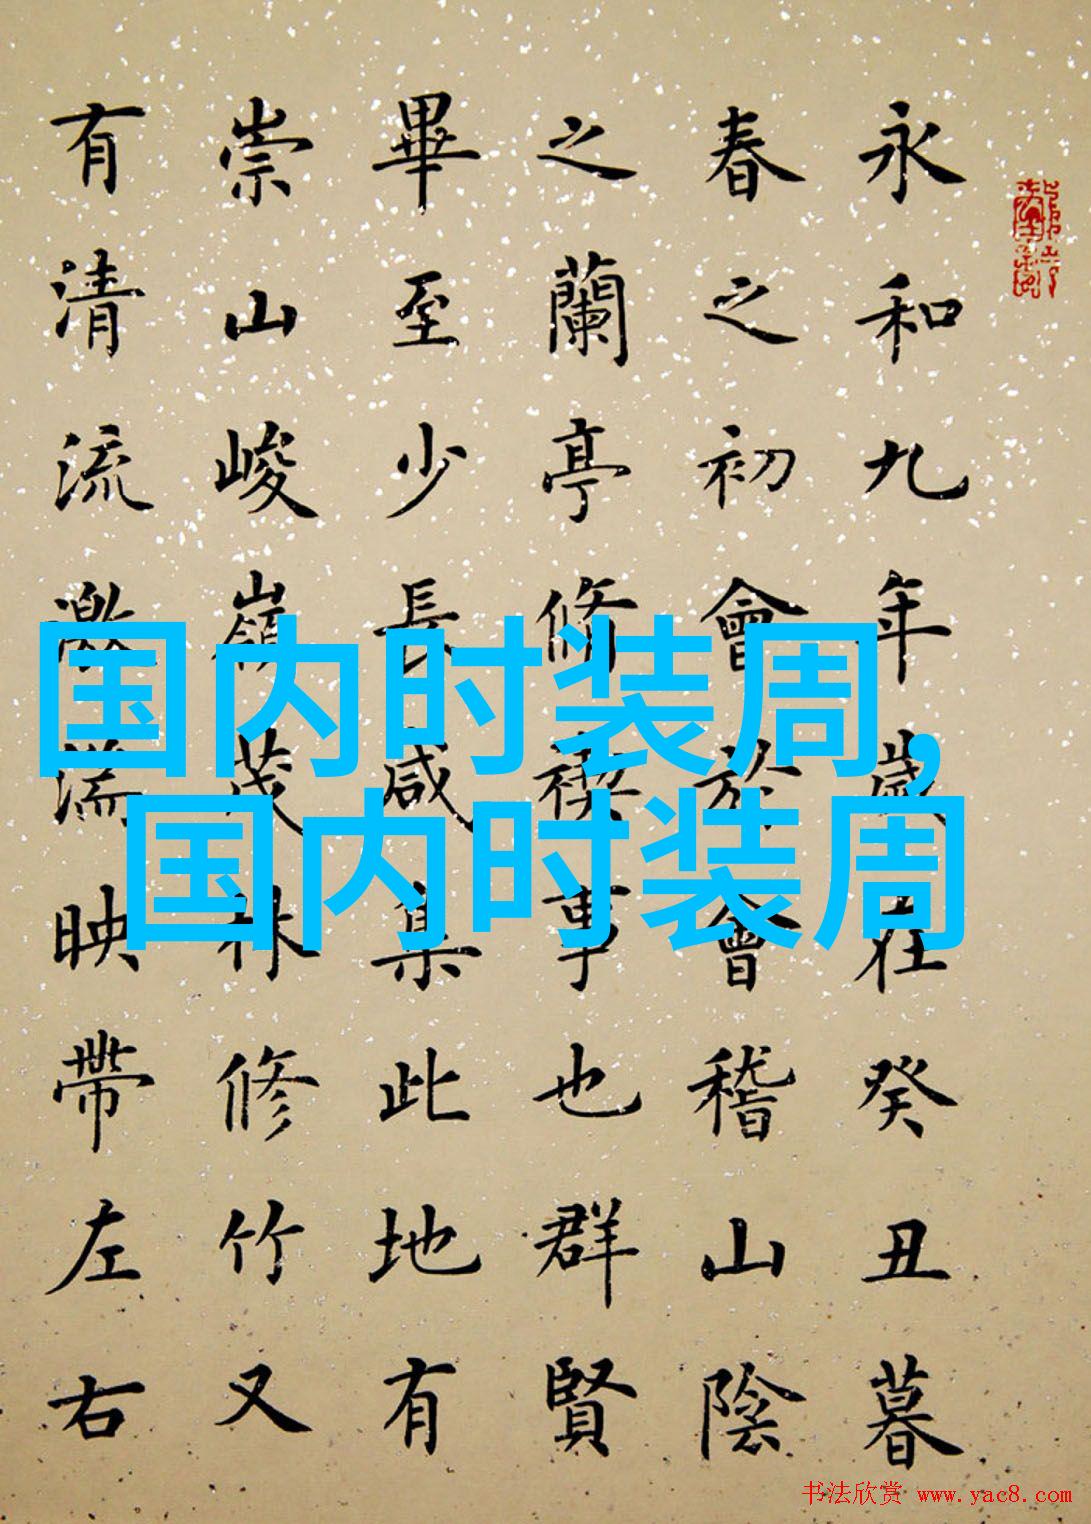 永和九年歲在癸丑暮
春之初會於會稽山陰
之蘭亭脩禊事也群賢
畢至少長咸集此地有
崇山峻嶺茂林修竹又
有清流激湍映帶左右
国内时装周,
国内时装周
书法欣赏 www.yac8.com